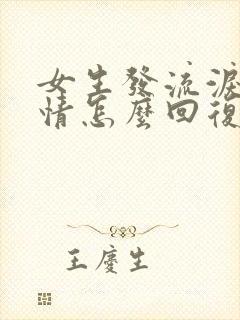 女生發流淚
情怎麼回復
王慶生